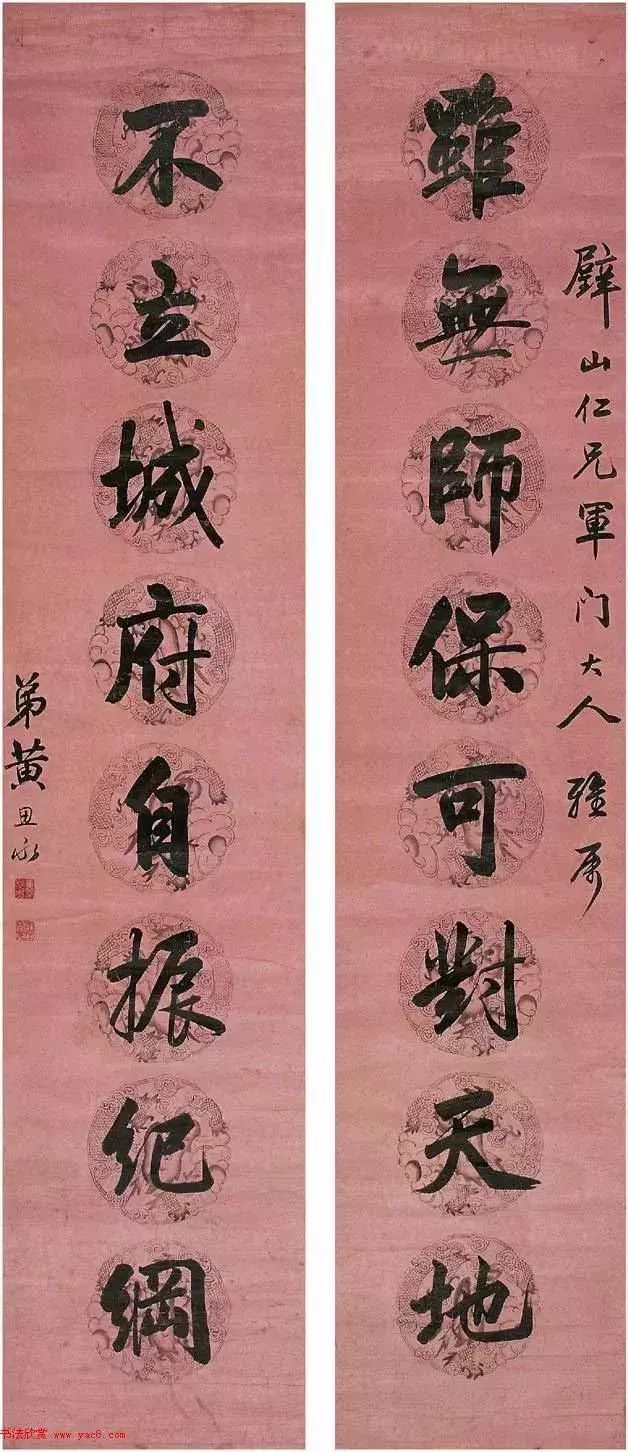 璧山仁兄軍门大人 雅属
雖無師保可對天地
不立城府自振紀綱
弟黄思永
书法欣赏 www.yac8.com